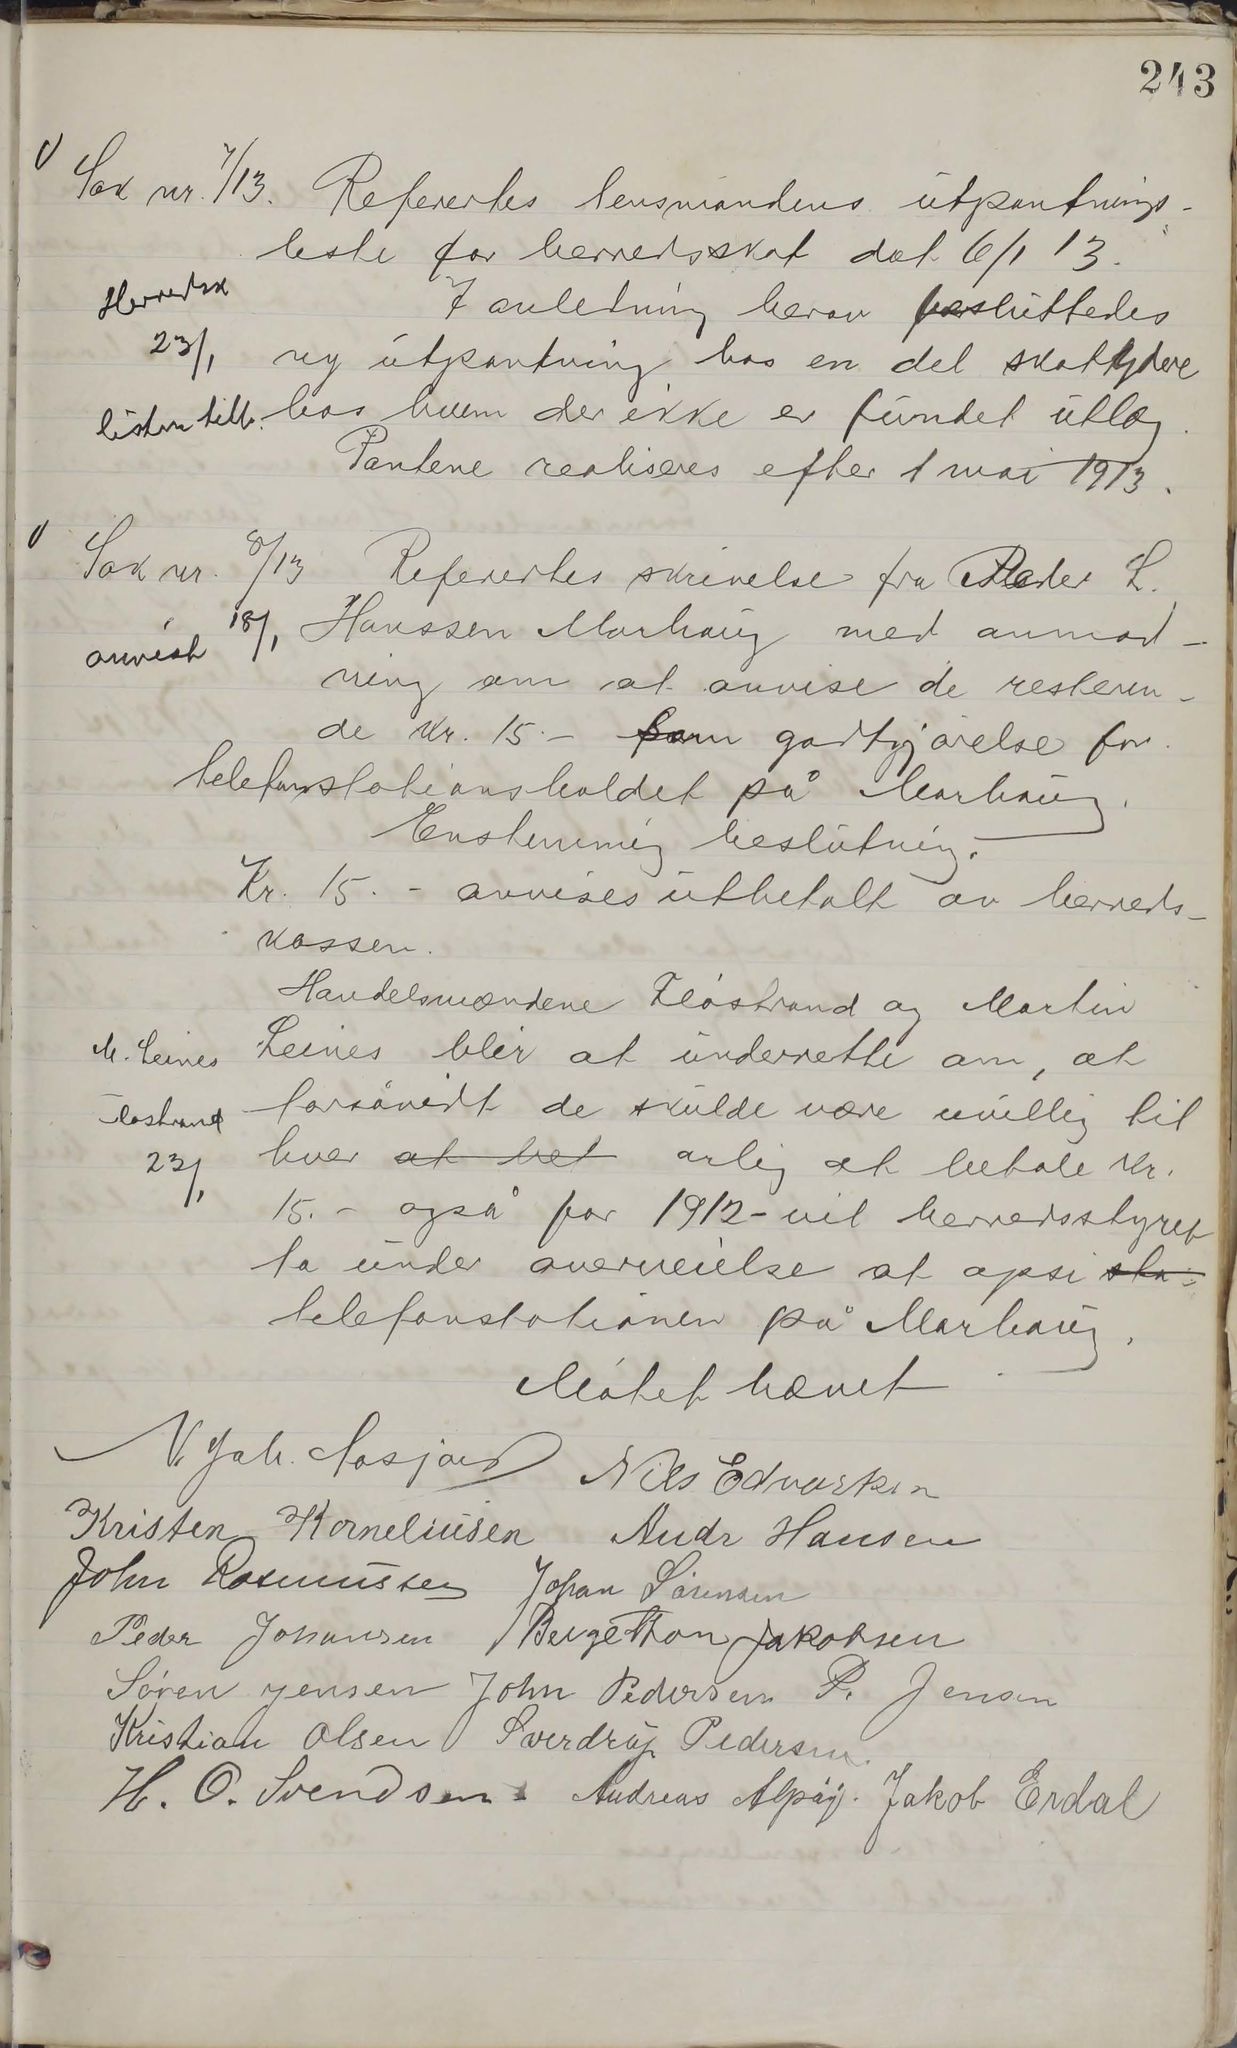 243
Sak nr. 7/13. Refereertes lensmandens utpantnings-
liste for herredsskat dat 6/1 13.
Herredsk
I anledning herav besluttedes
23/1
ny utpantning hos en del skattydere
listen tilb.
hos hvem der ikke er fundet utlæg.
Pantene realiseres efter 1 mai 1913.
Sak nr. 8/13 Refereertes skrivelse fra Peder L.
anvist 18/1
Hanssen Marhaug med anmod-
ning om at anvise de resteren-
de kr. 15.- som godtgjørelse for
telefonstationsholdet på Marhaug.
Enstemmig beslutning.
Kr. 15.- anvises utbetalt av herreds-
kassen.
Handelsmændene Flostrand og Martin
M. Leines
Leines blir at underrette om, at
Flostrand
forsåvidt de skulde være uvillig til
23/1
hver at bet årlig at betale kr.
15.- også for 1912 - vil herredsstyret
ta under overveielse at opsi sta-
telefonstationen på Marhaug.
Møtet hævet
N. Jak. Nils Edvartsen
Kristen Korneliusen Andr Hansen
John Rasmussen Johan Sørensen
Peder Johansen Bergethon Jakobsen
Søren Jensen John Pedersen P. Jensen
Kristian Olsen Sverdrup Pedersen.
H. O. Svendsen. Andreas Alpøy. Jakob Erdal